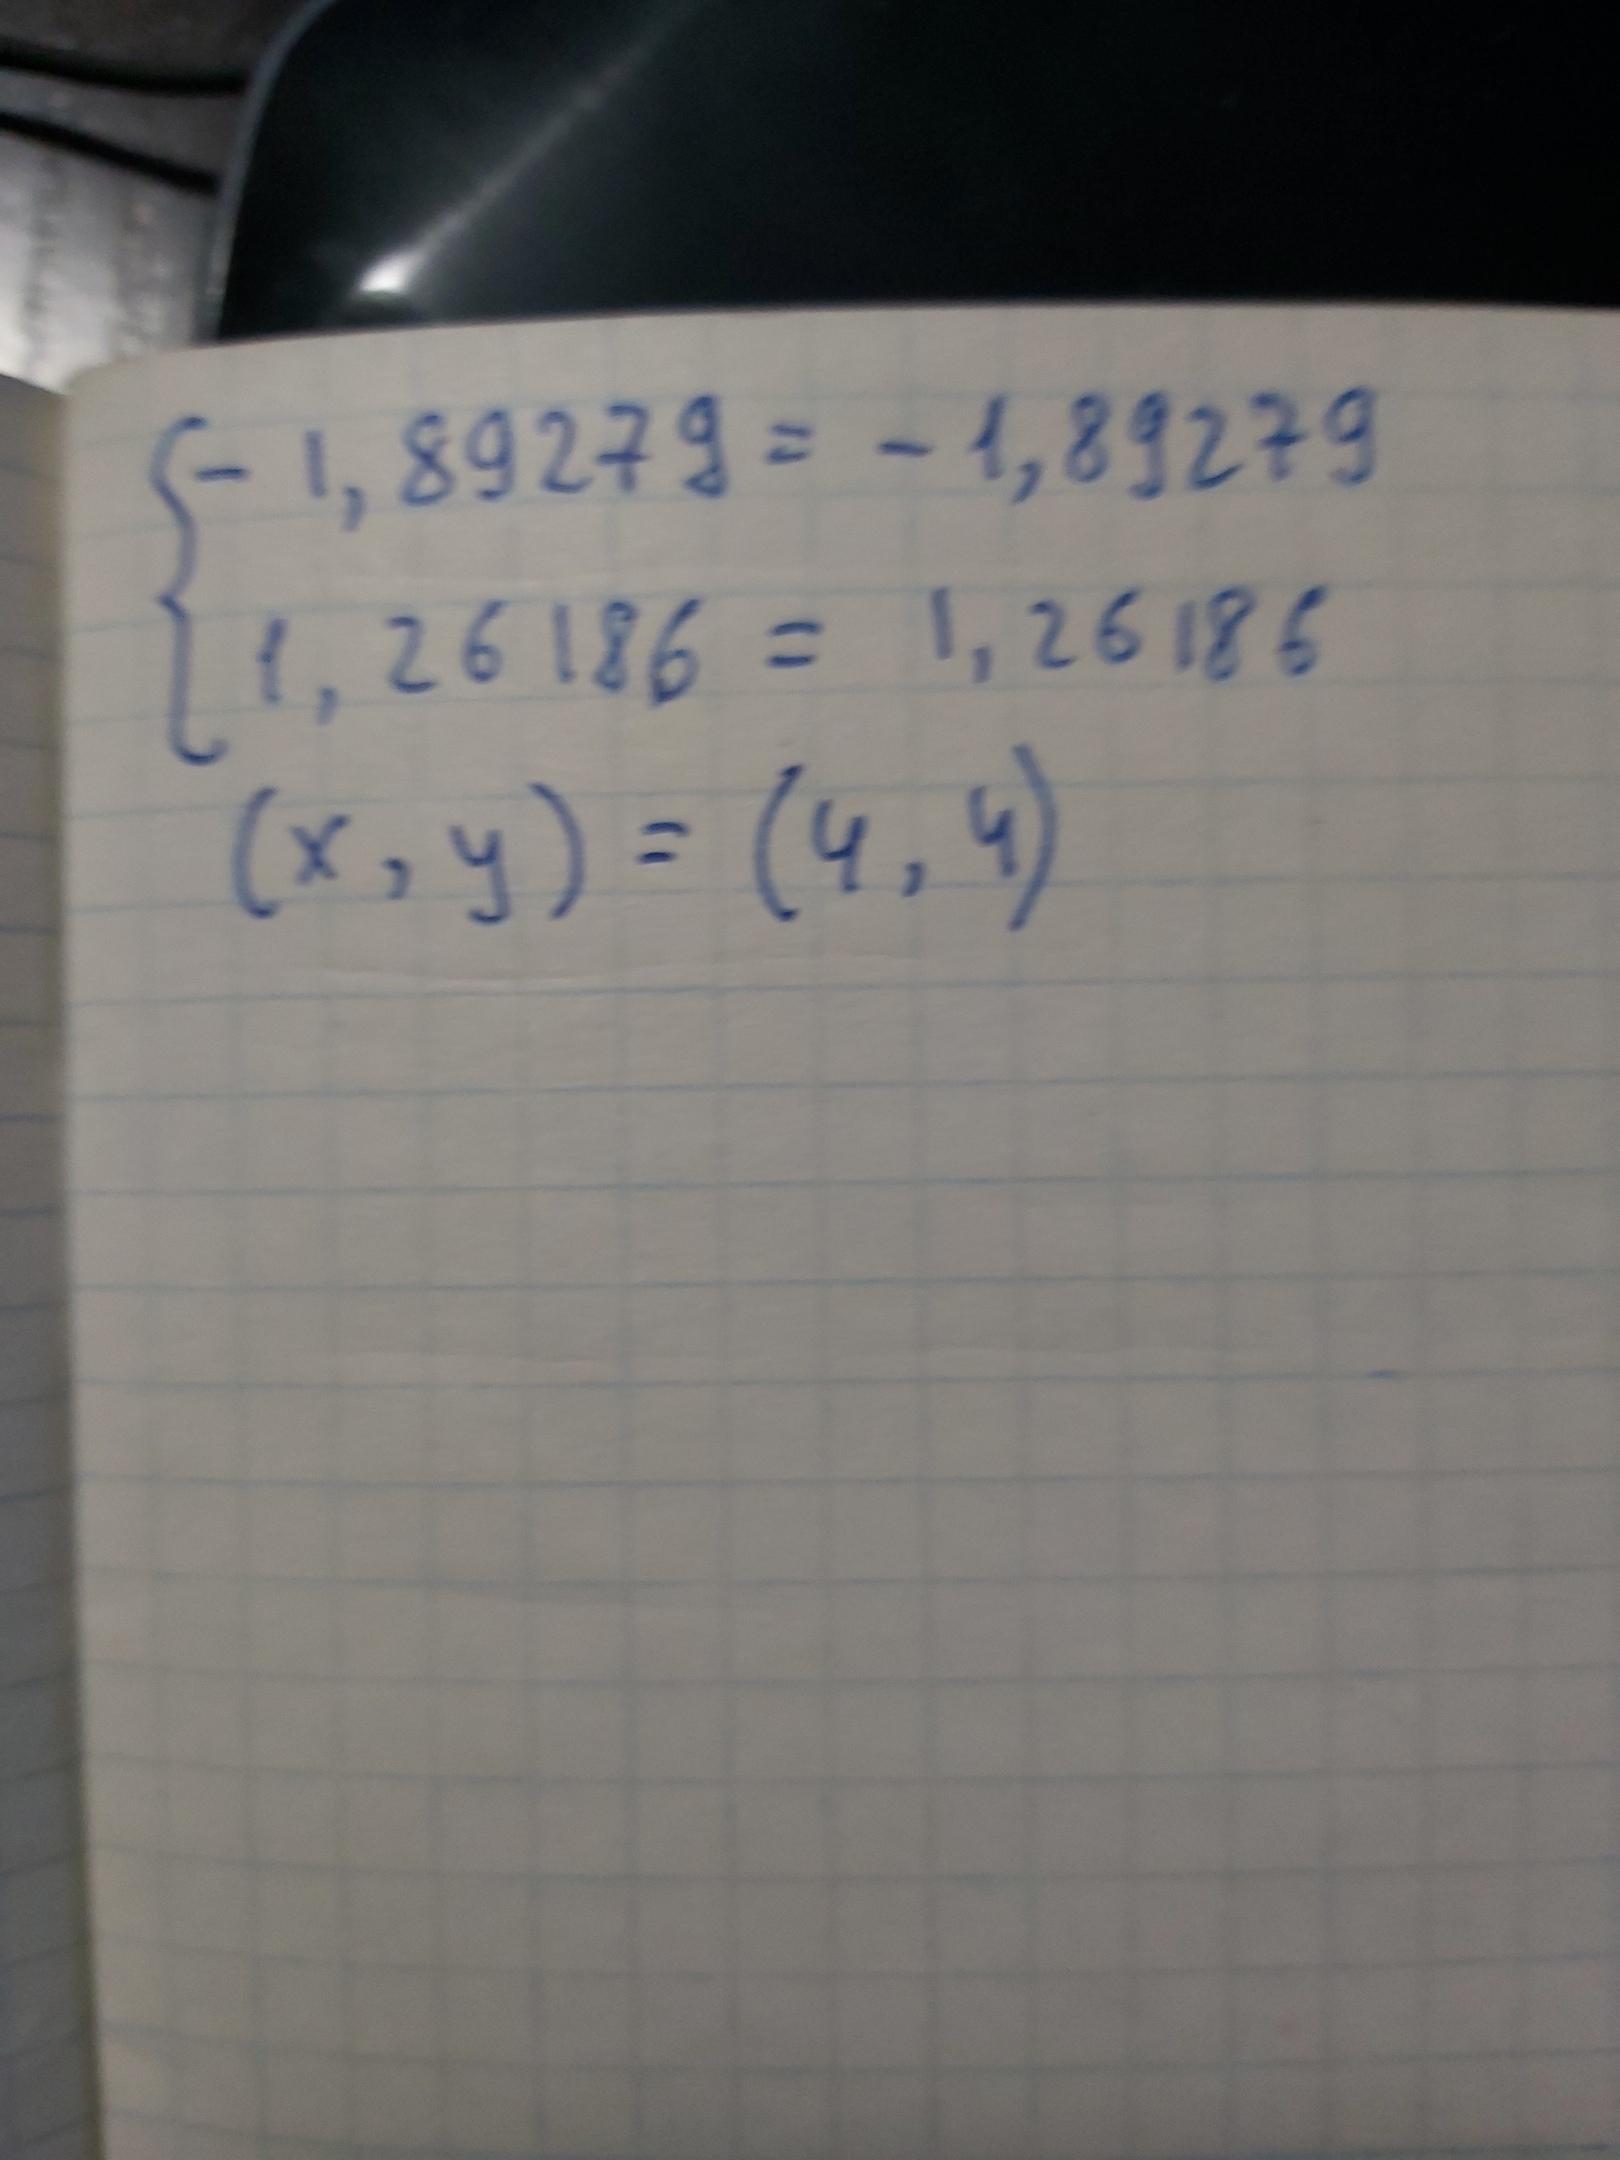 { - 1,89279 = - 1,89279
1,26186 = 1,26186
(x, y) = (4, 4)